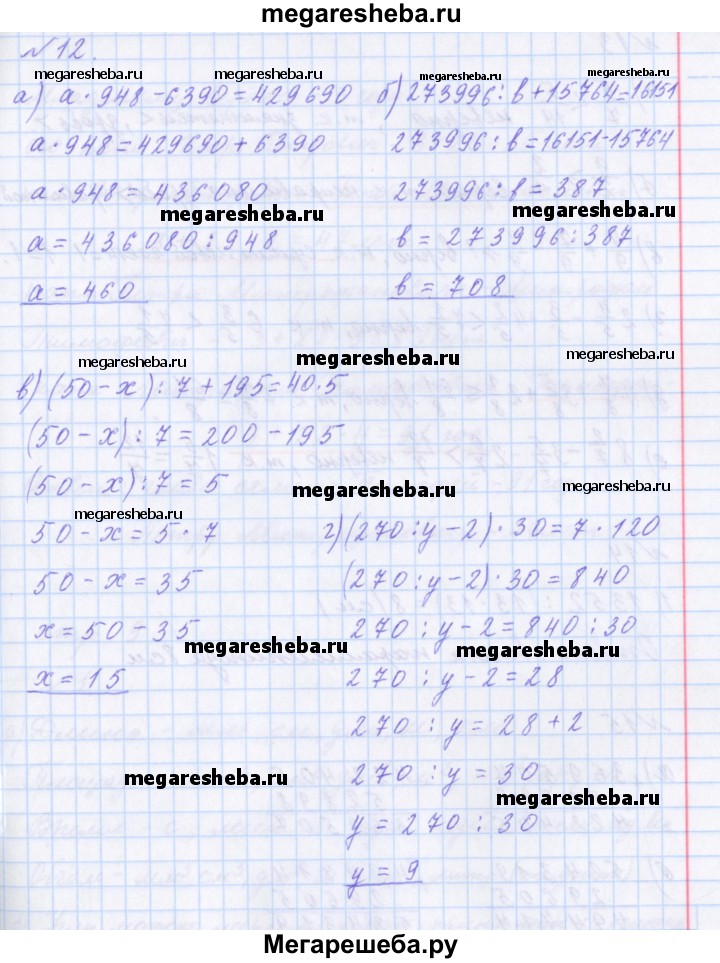 megaresheba.ru
№12.
а) a·948-6390=429690
a·948=429690+6390
a·948=436080
a=436080:948
a=460
б) 273996:b+15764=16151
273996:b=16151-15764
273996:b=387
b=273996:387
b=708
в) (50-x):7+195=40·5
(50-x):7=200-195
(50-x):7=5
50-x=5·7
50-x=35
x=50-35
x=15
г) (270:y-2)·30=7·120
(270:y-2)·30=840
270:y-2=840:30
270:y-2=28
270:y=28+2
270:y=30
y=270:30
y=9
megaresheba.ru
megaresheba.ru
megaresheba.ru
megaresheba.ru
megaresheba.ru
megaresheba.ru
megaresheba.ru
megaresheba.ru
megaresheba.ru
megaresheba.ru
megaresheba.ru
megaresheba.ru
megaresheba.ru
Мегарешеба.ру